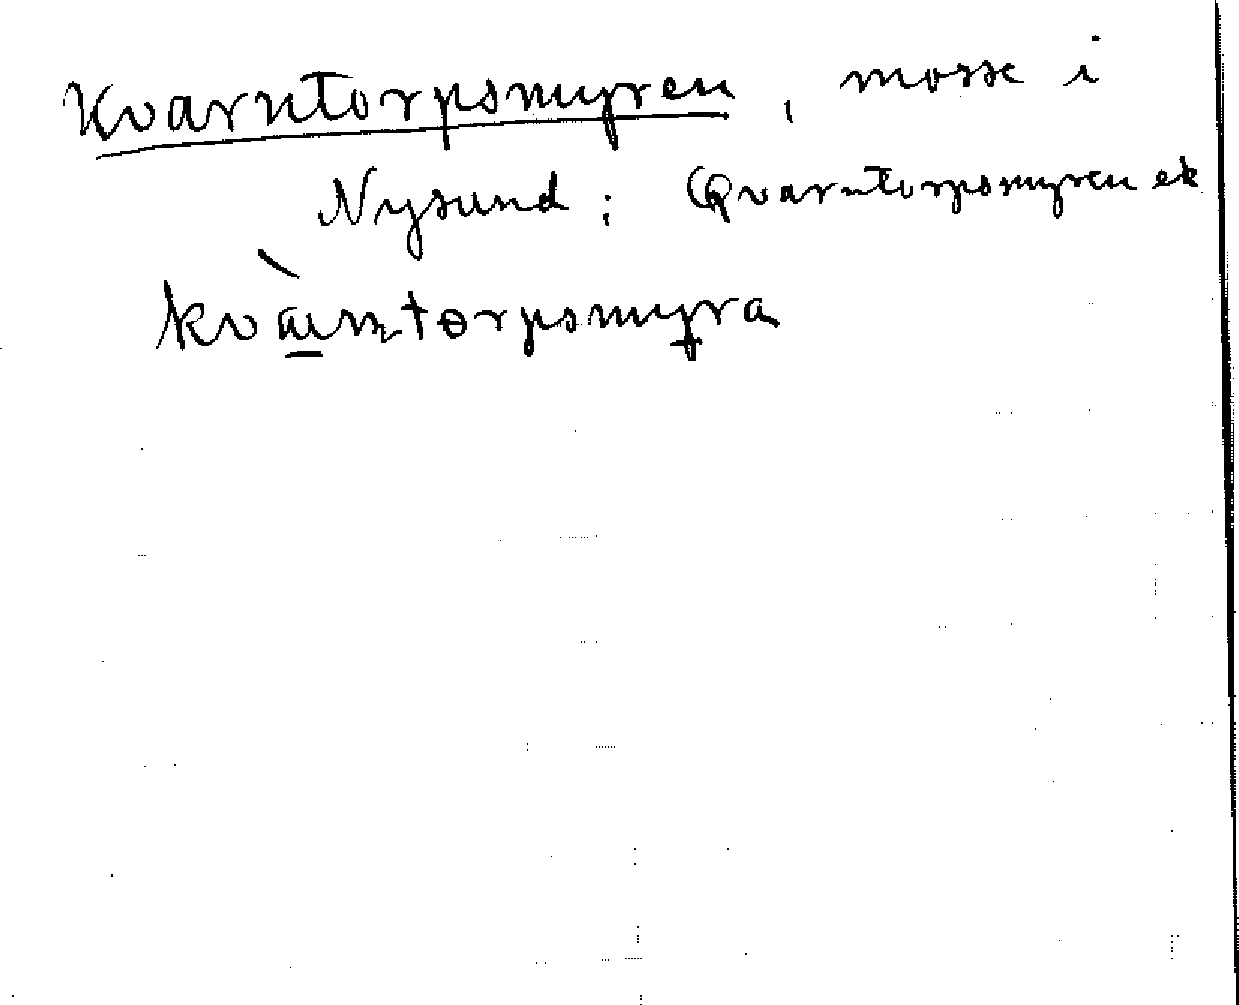 Kvarntorpsmyren, mosse i
Nysund; Qvarntorpsmyren ek
kvàrntorpsmyra